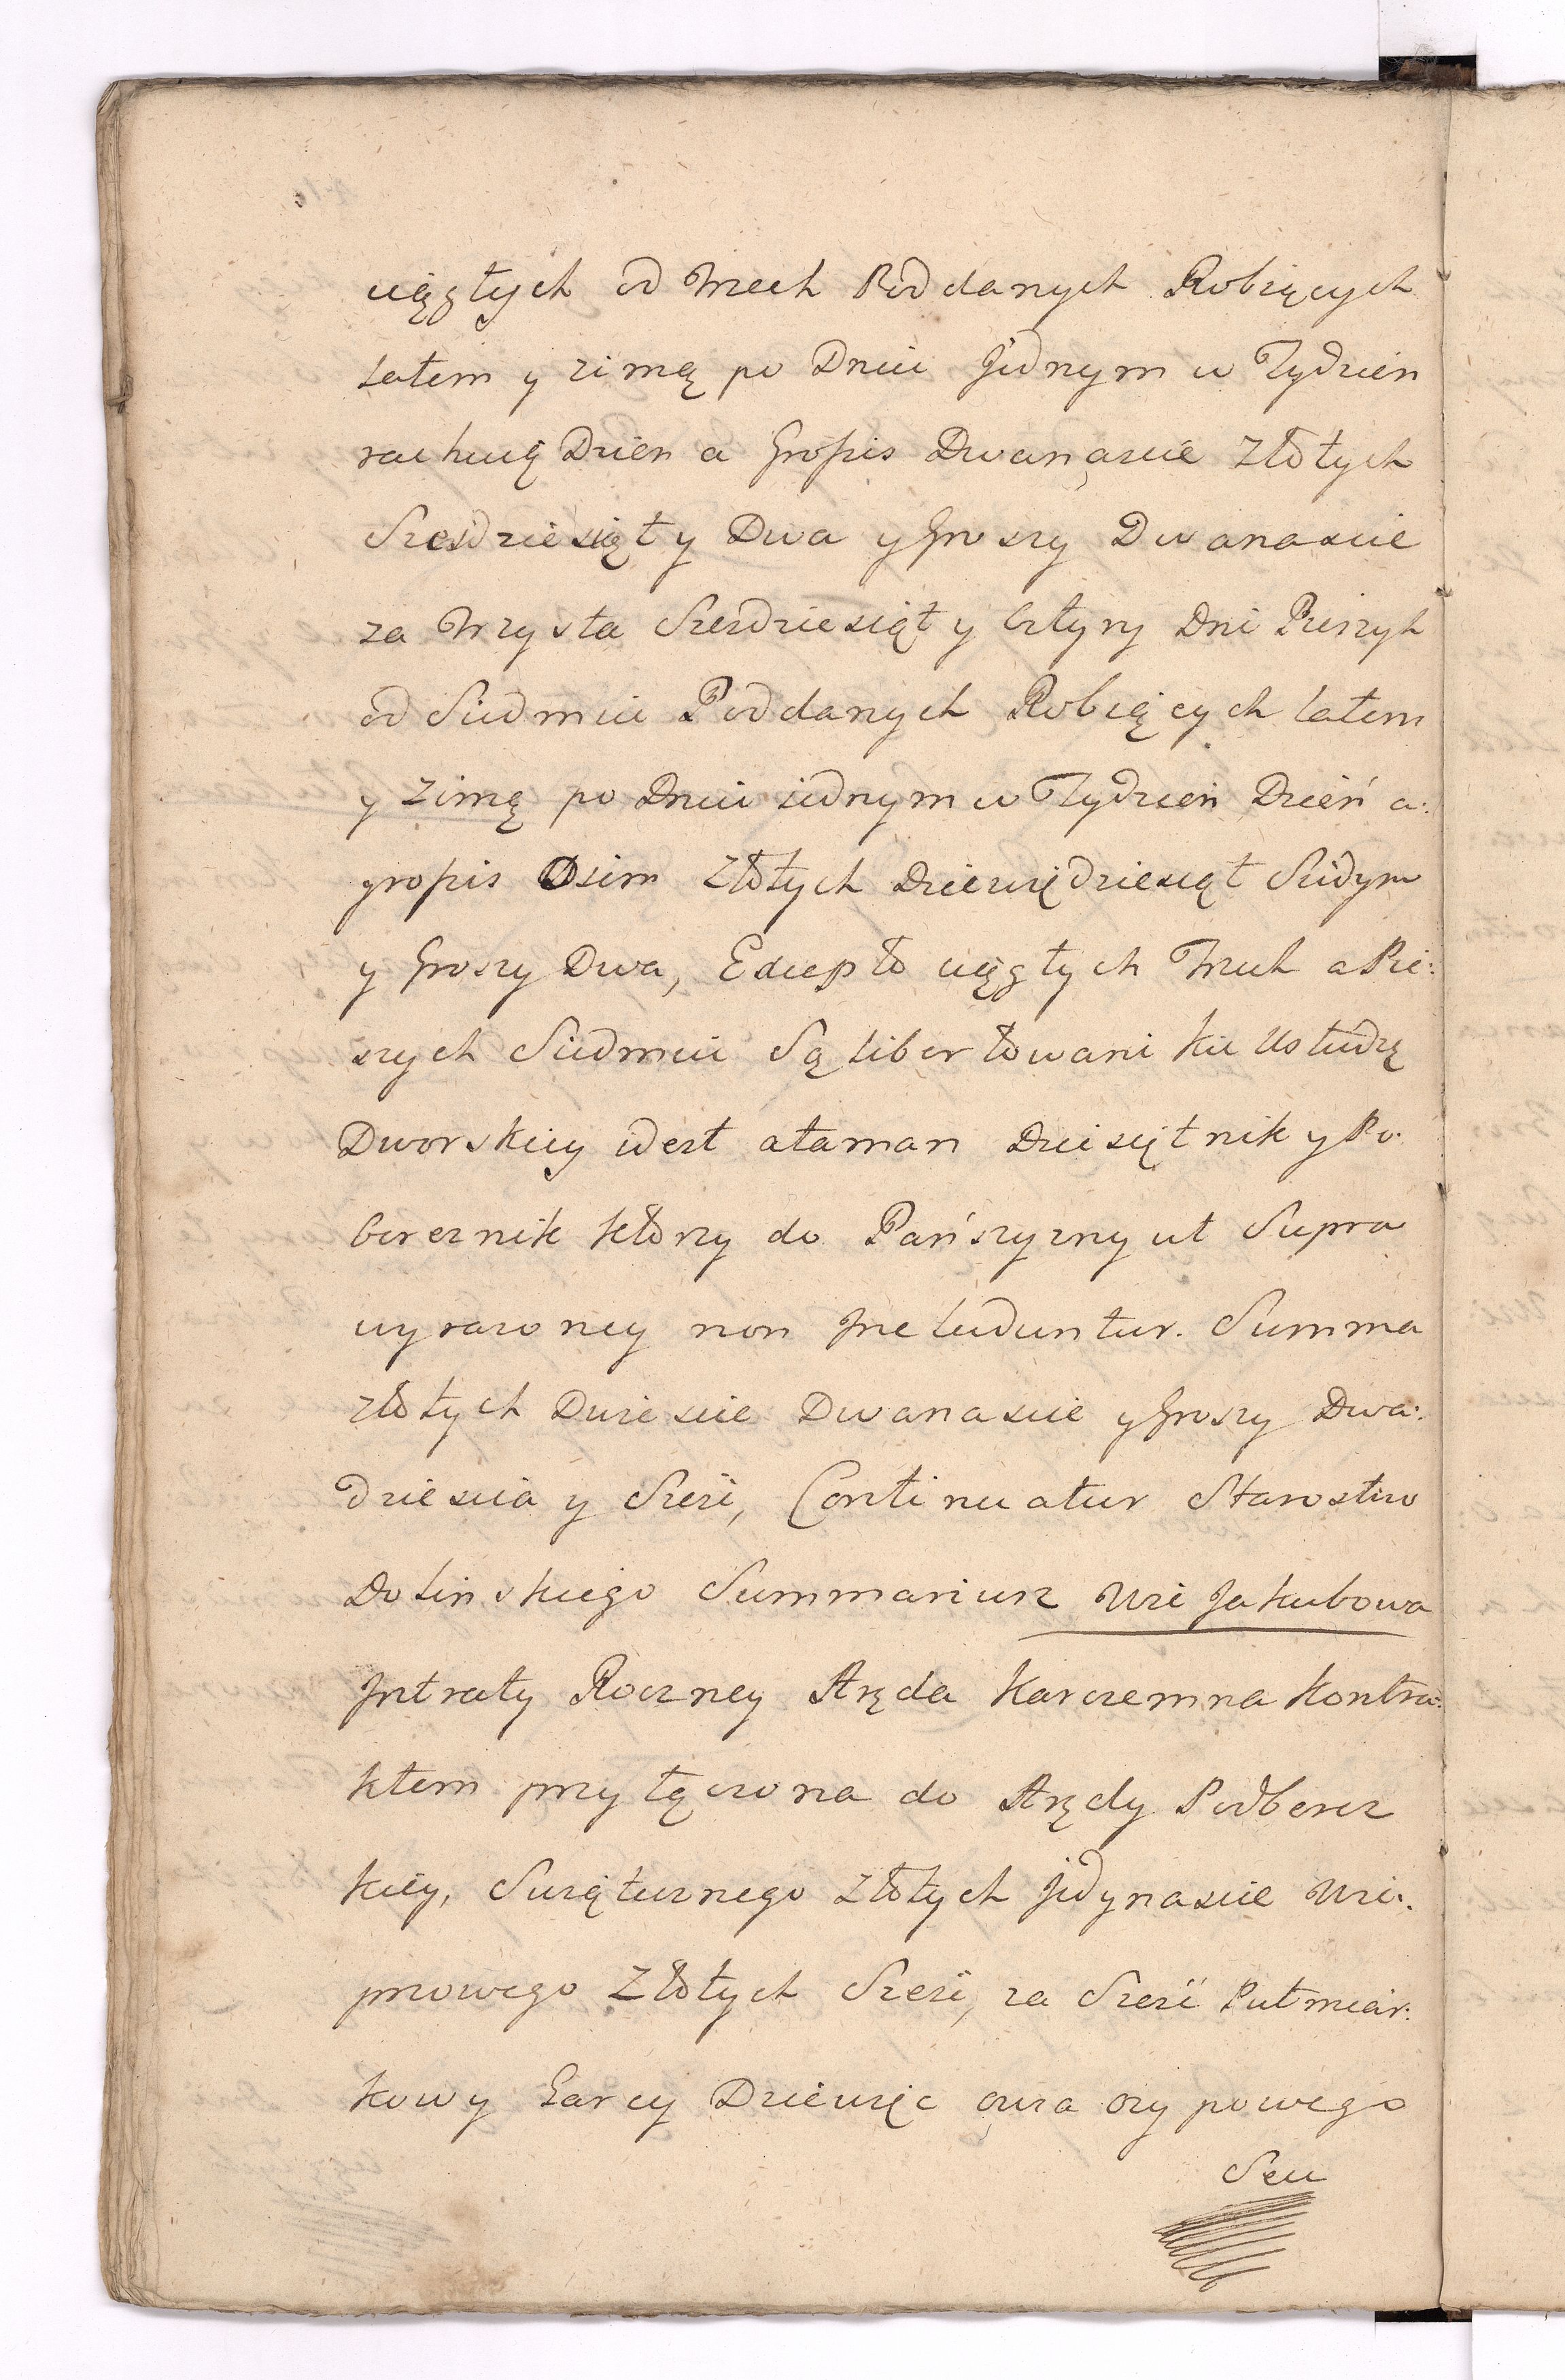 ciągłych od trzech Poddanych Robiących
latem y zimą po Dniu Jednym w Tydzien
rachuią Dzien a Groszis Dwanascie Złotych
Szesdziesiąt y Dwa y Groszy Dwanascie
za trzysta Szesdziesiąt y Cztyry Dni Pieszych
od Siedmiu Poddanych Robiących latem
y Zimą po Dniu iednym w Tydzien Dzień a:
groszis Osim Złotych Dziewiędziesiąt Siedym
y Groszy Dwa, Excepto ciągłych Trzech a Pie:
szych Siedmiu Są libertowani ku Usłudzę
Dworskiey idest ataman Dziesiętnik y Po:
bereznik ktorzy do Pańszyzny ut Supra
wyrazoney non Jncluduntur. Summa
złotych Dwiescie Dwanascie y Groszy Dwa:
dziescia y Szesć, Continuatur Starostwo
Dolinskiego Summariusz Wsi Jakubowa
Jntraty Roczney Aręda Karczemna Kontra:
ktem przyłączona do Arędy Podberez
kiey, Swiętuznego złotych Jedynascie Wie:
przowego Złotych Szesć, za Szesć Pułmiar:
kowy Garcy Dziewięc owsa osypowego
Seu